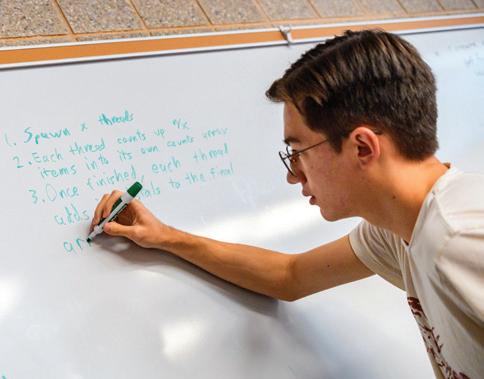 1. Spawn x threads
2. Each thread counts up n/x
items into its own counts array
3. Once finished, each thread
adds to the final
ar